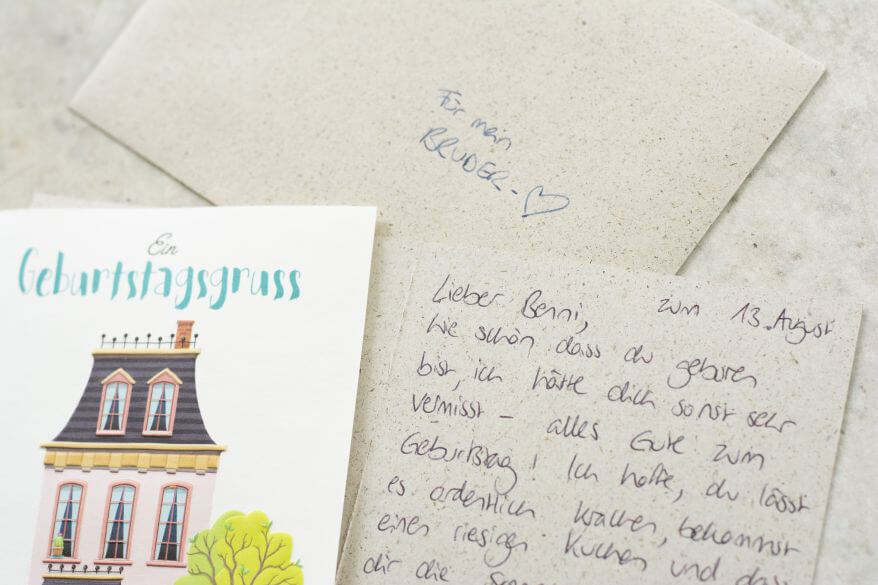 Für mein
BRUDER -
Ein
Geburtstagsgruss
Lieber Benni, zum 13. August
wie schön dass du geboren
bist, ich hätte dich sonst sehr
vermisst - alles Gute zum
Geburtstag! Ich hoffe, du lässt
es ordentlich krachen, bekommst
einen riesigen Kuchen und dass
dir die